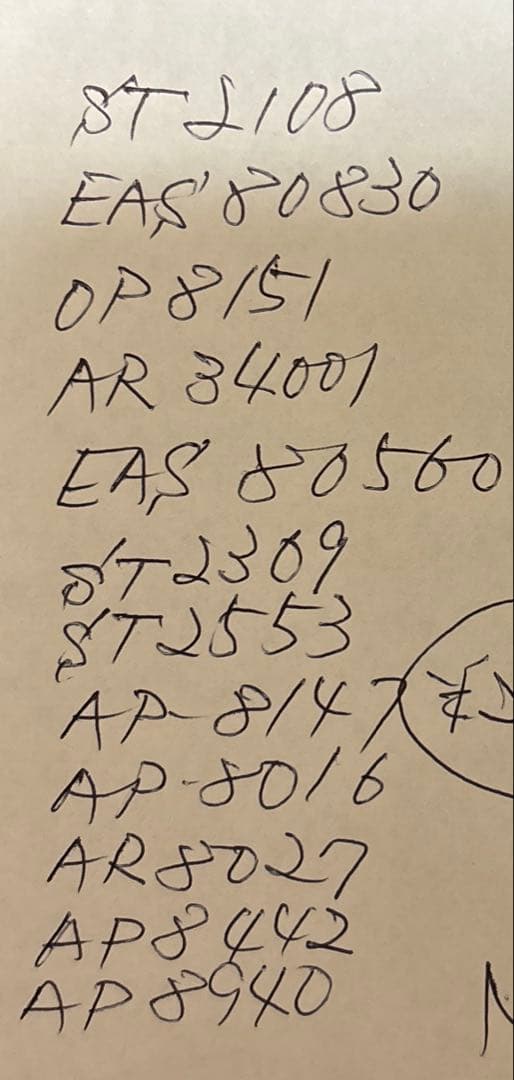 ST 2108
EAS 80830
OP 8151
AR 34001
EAS 80560
ST 2309
ST 2553
AP-8147
AP-8016
AR 8027
AP 8442
AP 8940
N